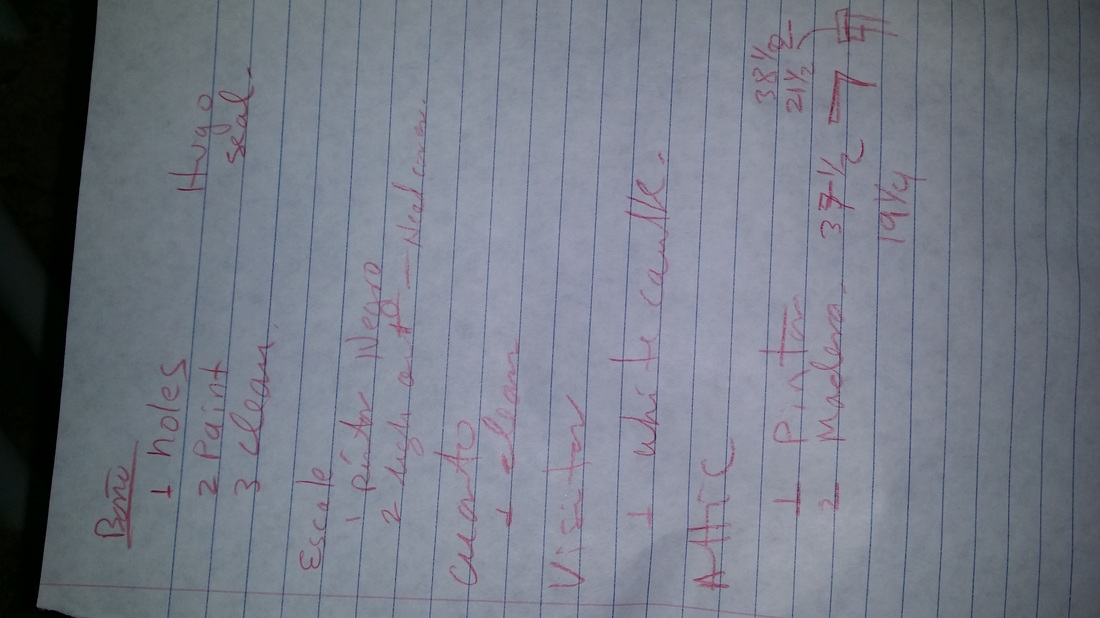 Baño
1 holes
2 Paint Hugo
3 clean. seal.
Escale
1 Pintar Negro
2 Ligh out - Need cover.
Cuarto
1 clean
Visitar
1 white caulk.
Attic
1 Pintar 38 1/2
2 Madera. 37 1/2 21 1/2
19 1/4